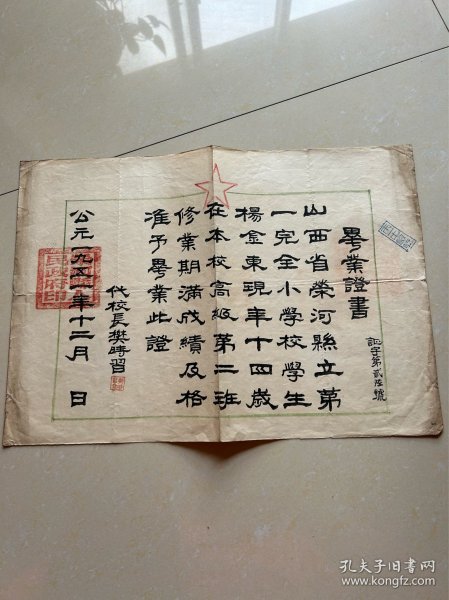 畢業證書
証字第貳陸號
山西省榮河縣立第
一完全小學校學生
楊金東現年十四歲
在本校高級第二班
修業期滿成績及格
准予畢業此證
代校長樊時習
公元一九五一年十二月 日
民政府印
孔夫子旧书网
www.kongfz.com